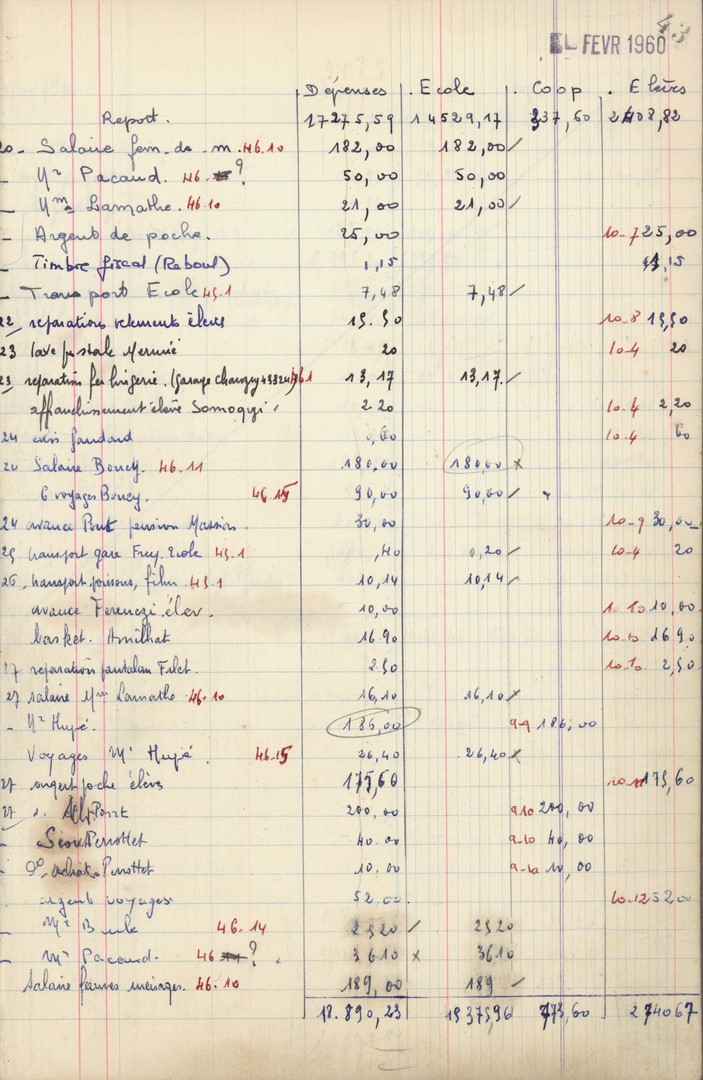 43
FEVR 1960
Dépenses Ecole Coop Elèves
Report. 17275,59 14529,17 337,60 2408,82
20 - Salaire fem. de m. 46.10 182,00 182,00 /
- Mr Pacaud. 46 ? 50,00 50,00
- Mme Lamathe. 46.10 21,00 21,00 /
- Argent de poche. 25,00 10-7 25,00
- Timbre fiscal (Reboul) 1,15 1,15
- Transport Ecole 45.1 7,48 7,48 /
22 réparations vetements élèves 15.50 10-8 15,50
23 taxe postale 20 10-4 20
23 reparation (garage 13,17 13,17. /
affranchissement élève Somogyi 2.20 10.4 2,20
24 0,60 10-4 60
20 Salaire Boucy. 46.11 180,00 180,00 x
6 voyages Boucy. 46.15 90,00 90,00 /
24 avance Pont pension 30,00 10-9 30,00
25 transport gare Ecole 45.1 ,40 0,20 / 10-4 20
26, transport poissons, film. 45.1 10,14 10,14 /
avance Ferenczi élev. 10,00 10,00
basket. Amilhat 16.90 10.10 16.90
27 reparation pantalon Filet. 2.50 10.10. 2,50
27 salaire Mme Lamathe 46.10 16,10 16,10 x
- Mr Hugé. 186,00 9-9 186,00
Voyages Mr Hugé. 46.15 26,40 26,40 x
27 argent poche élèves 175,60 175,60
27 Pont 200,00 9.10 200,00
- Perrottet 40.00 9-10 40,00
- do achat Perrottet 10.00 9-10 10,00
argent voyages 52,00. 10.12 52.00
- Mr 46.14 25,20 / 25,20
- Mr Pacaud. 46 ? 36.10 x 36.10
Salaire femmes ménages. 46.10 189,00 189 /
18.890,23 15375,96 773,60 274067